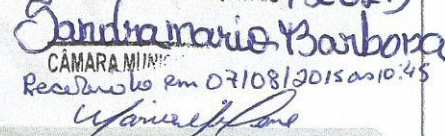 Sandramario Barbosa
CÂMARA MUNIC
Recebido em 07/08/2015 às 10:45